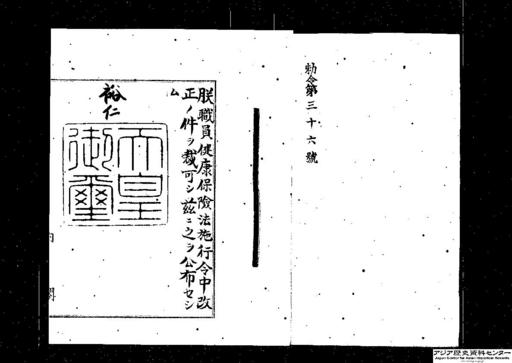 勅令第三十六號
朕職員健康保險法施行令中改
正ノ件ヲ裁可シ茲ニ之ヲ公布セシ
ム
裕仁
天皇
御璽
内閣
アジア歴史資料センター
Japan Center for Asian Historical Records